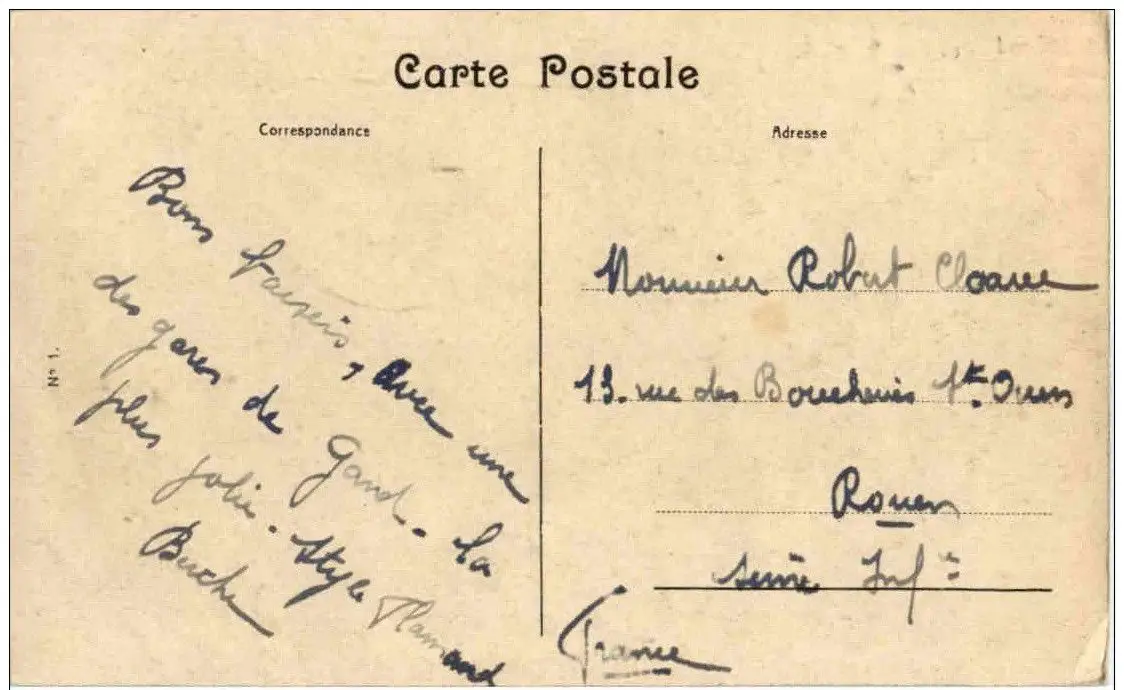 Carte Postale
Correspondance
Adresse
N° 1.
Bons baisers, Avec une
des gares de Gand. La
plus jolie. Style Flamand
Monsieur Robert Cloarec
13. rue des Boucheries St. Ouen
Rouen
Seine Infre
France